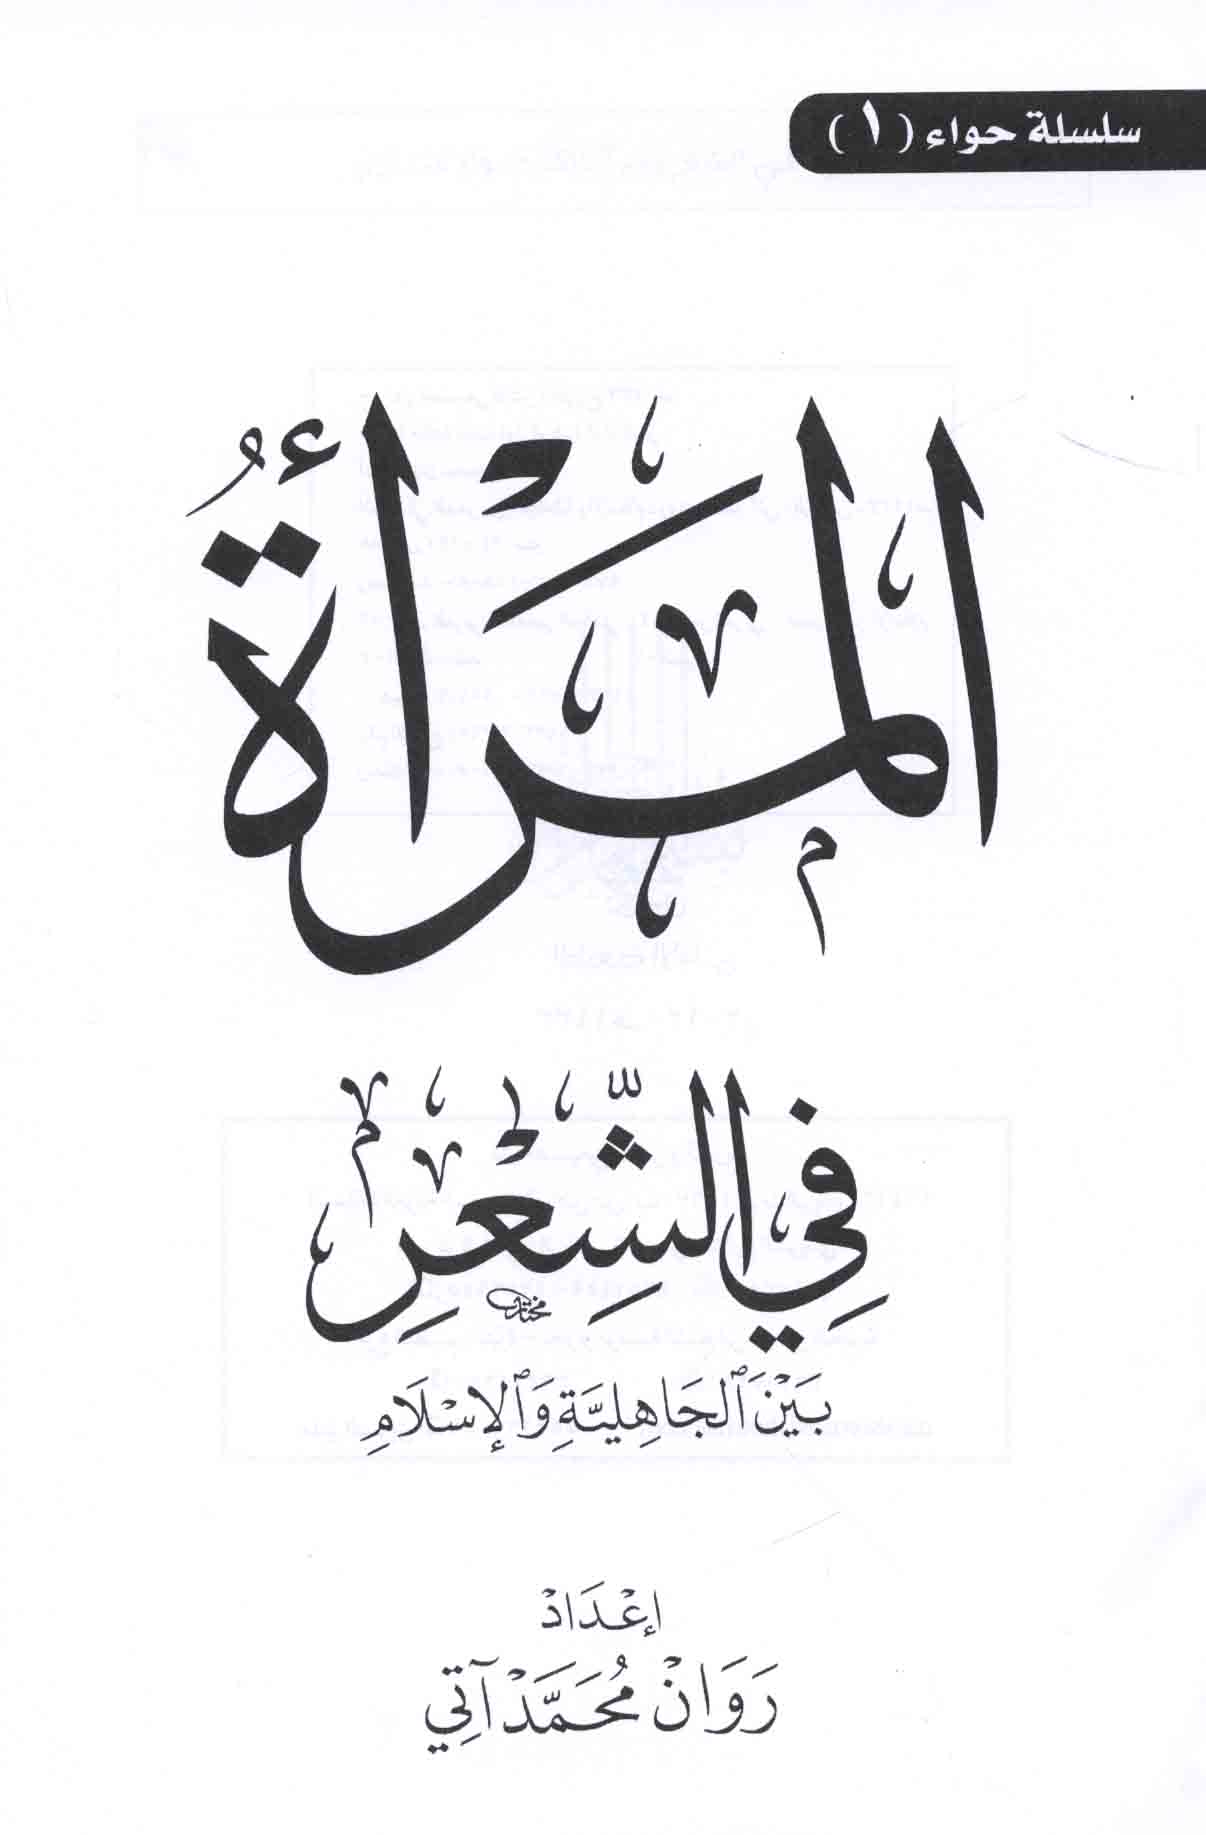 سلسلة حواء (١)
المَرْأَةُ
فِي الشِّعْرِ
مختار
بَيْنَ ٱلْجَاهِلِيَّةِ وَٱلْإِسْلَامِ
إِعْدَاد
رَوَانْ مُحَمَّد آتِي